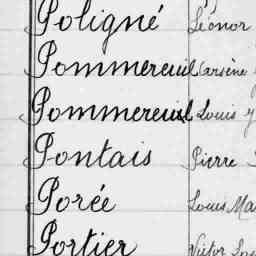 Poligné Léonor
Pommereuil Carsène
Pommereuil Louis
Pontais Pierre
Porée Louis Ma
Portier Victor